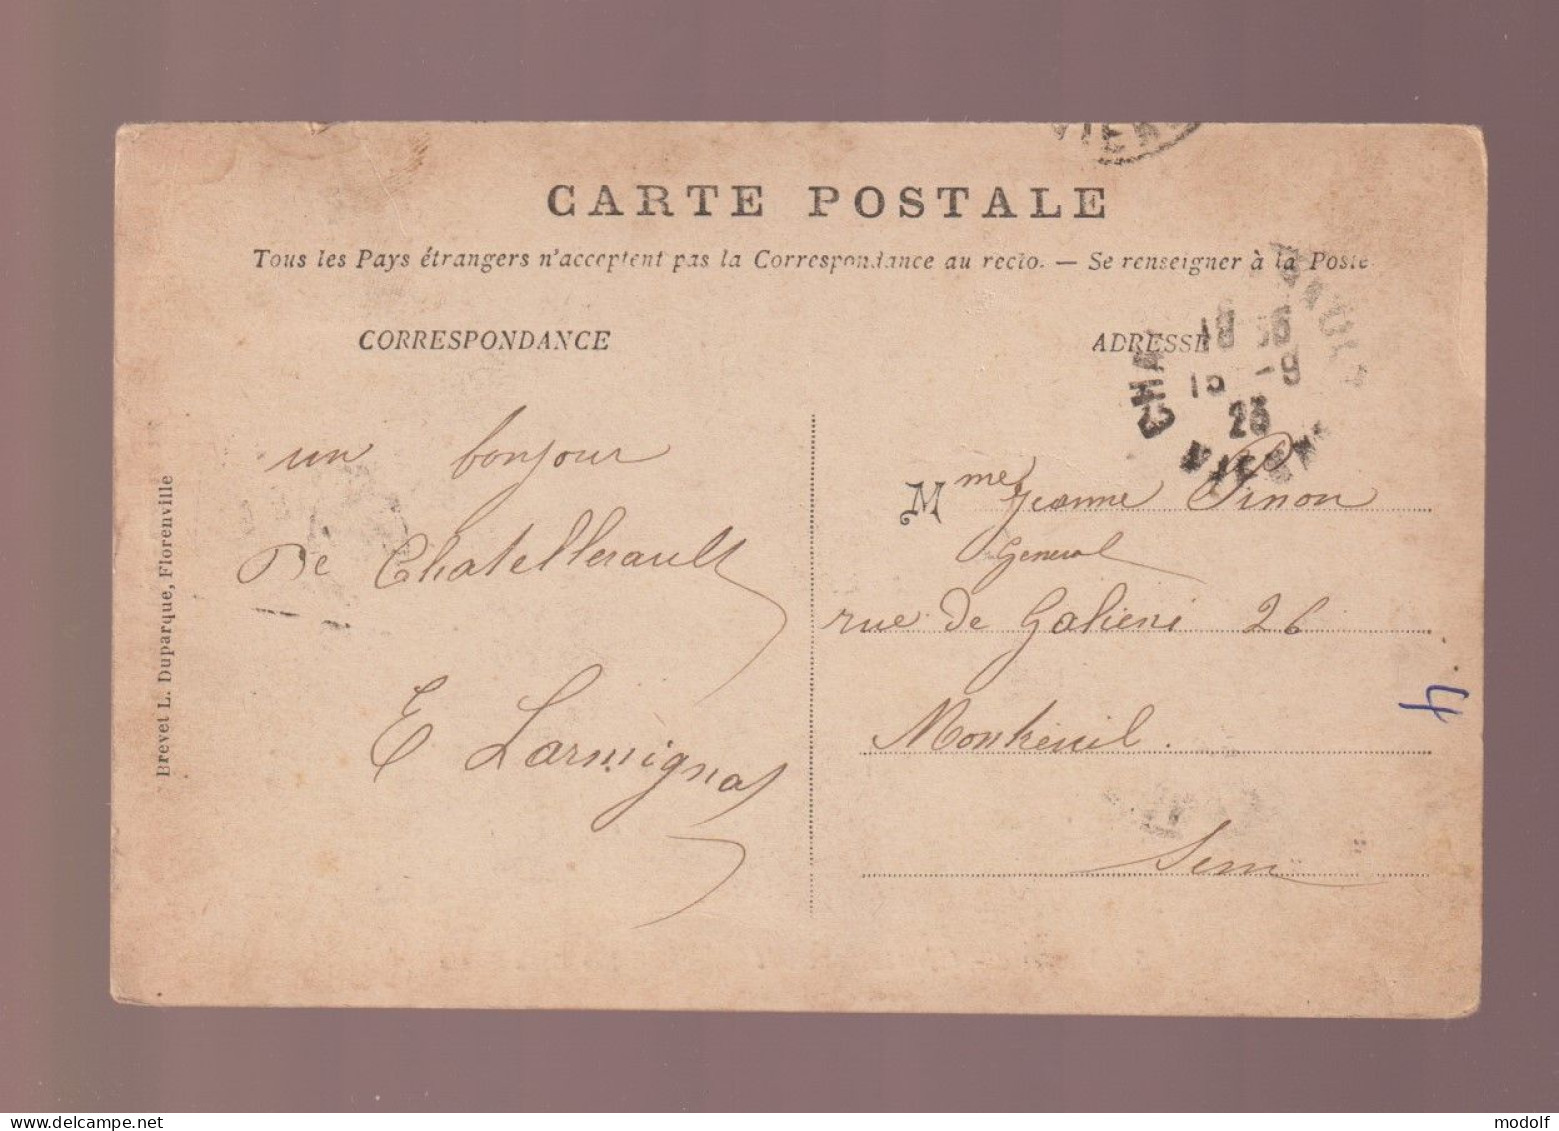 VIEN
CARTE POSTALE
Tous les Pays étrangers n'acceptent pas la Correspondance au recto. — Se renseigner à la Poste
CORRESPONDANCE
ADRESSE
18 36
15 -9
23
un bonjour
De Chatellerault
E Larmignat
Mme Jeanne Pinon
General
rue de Galieni 26
Montreuil.
Seine
4
Brevet L. Duparque, Florenville
www.delcampe.net
modolf